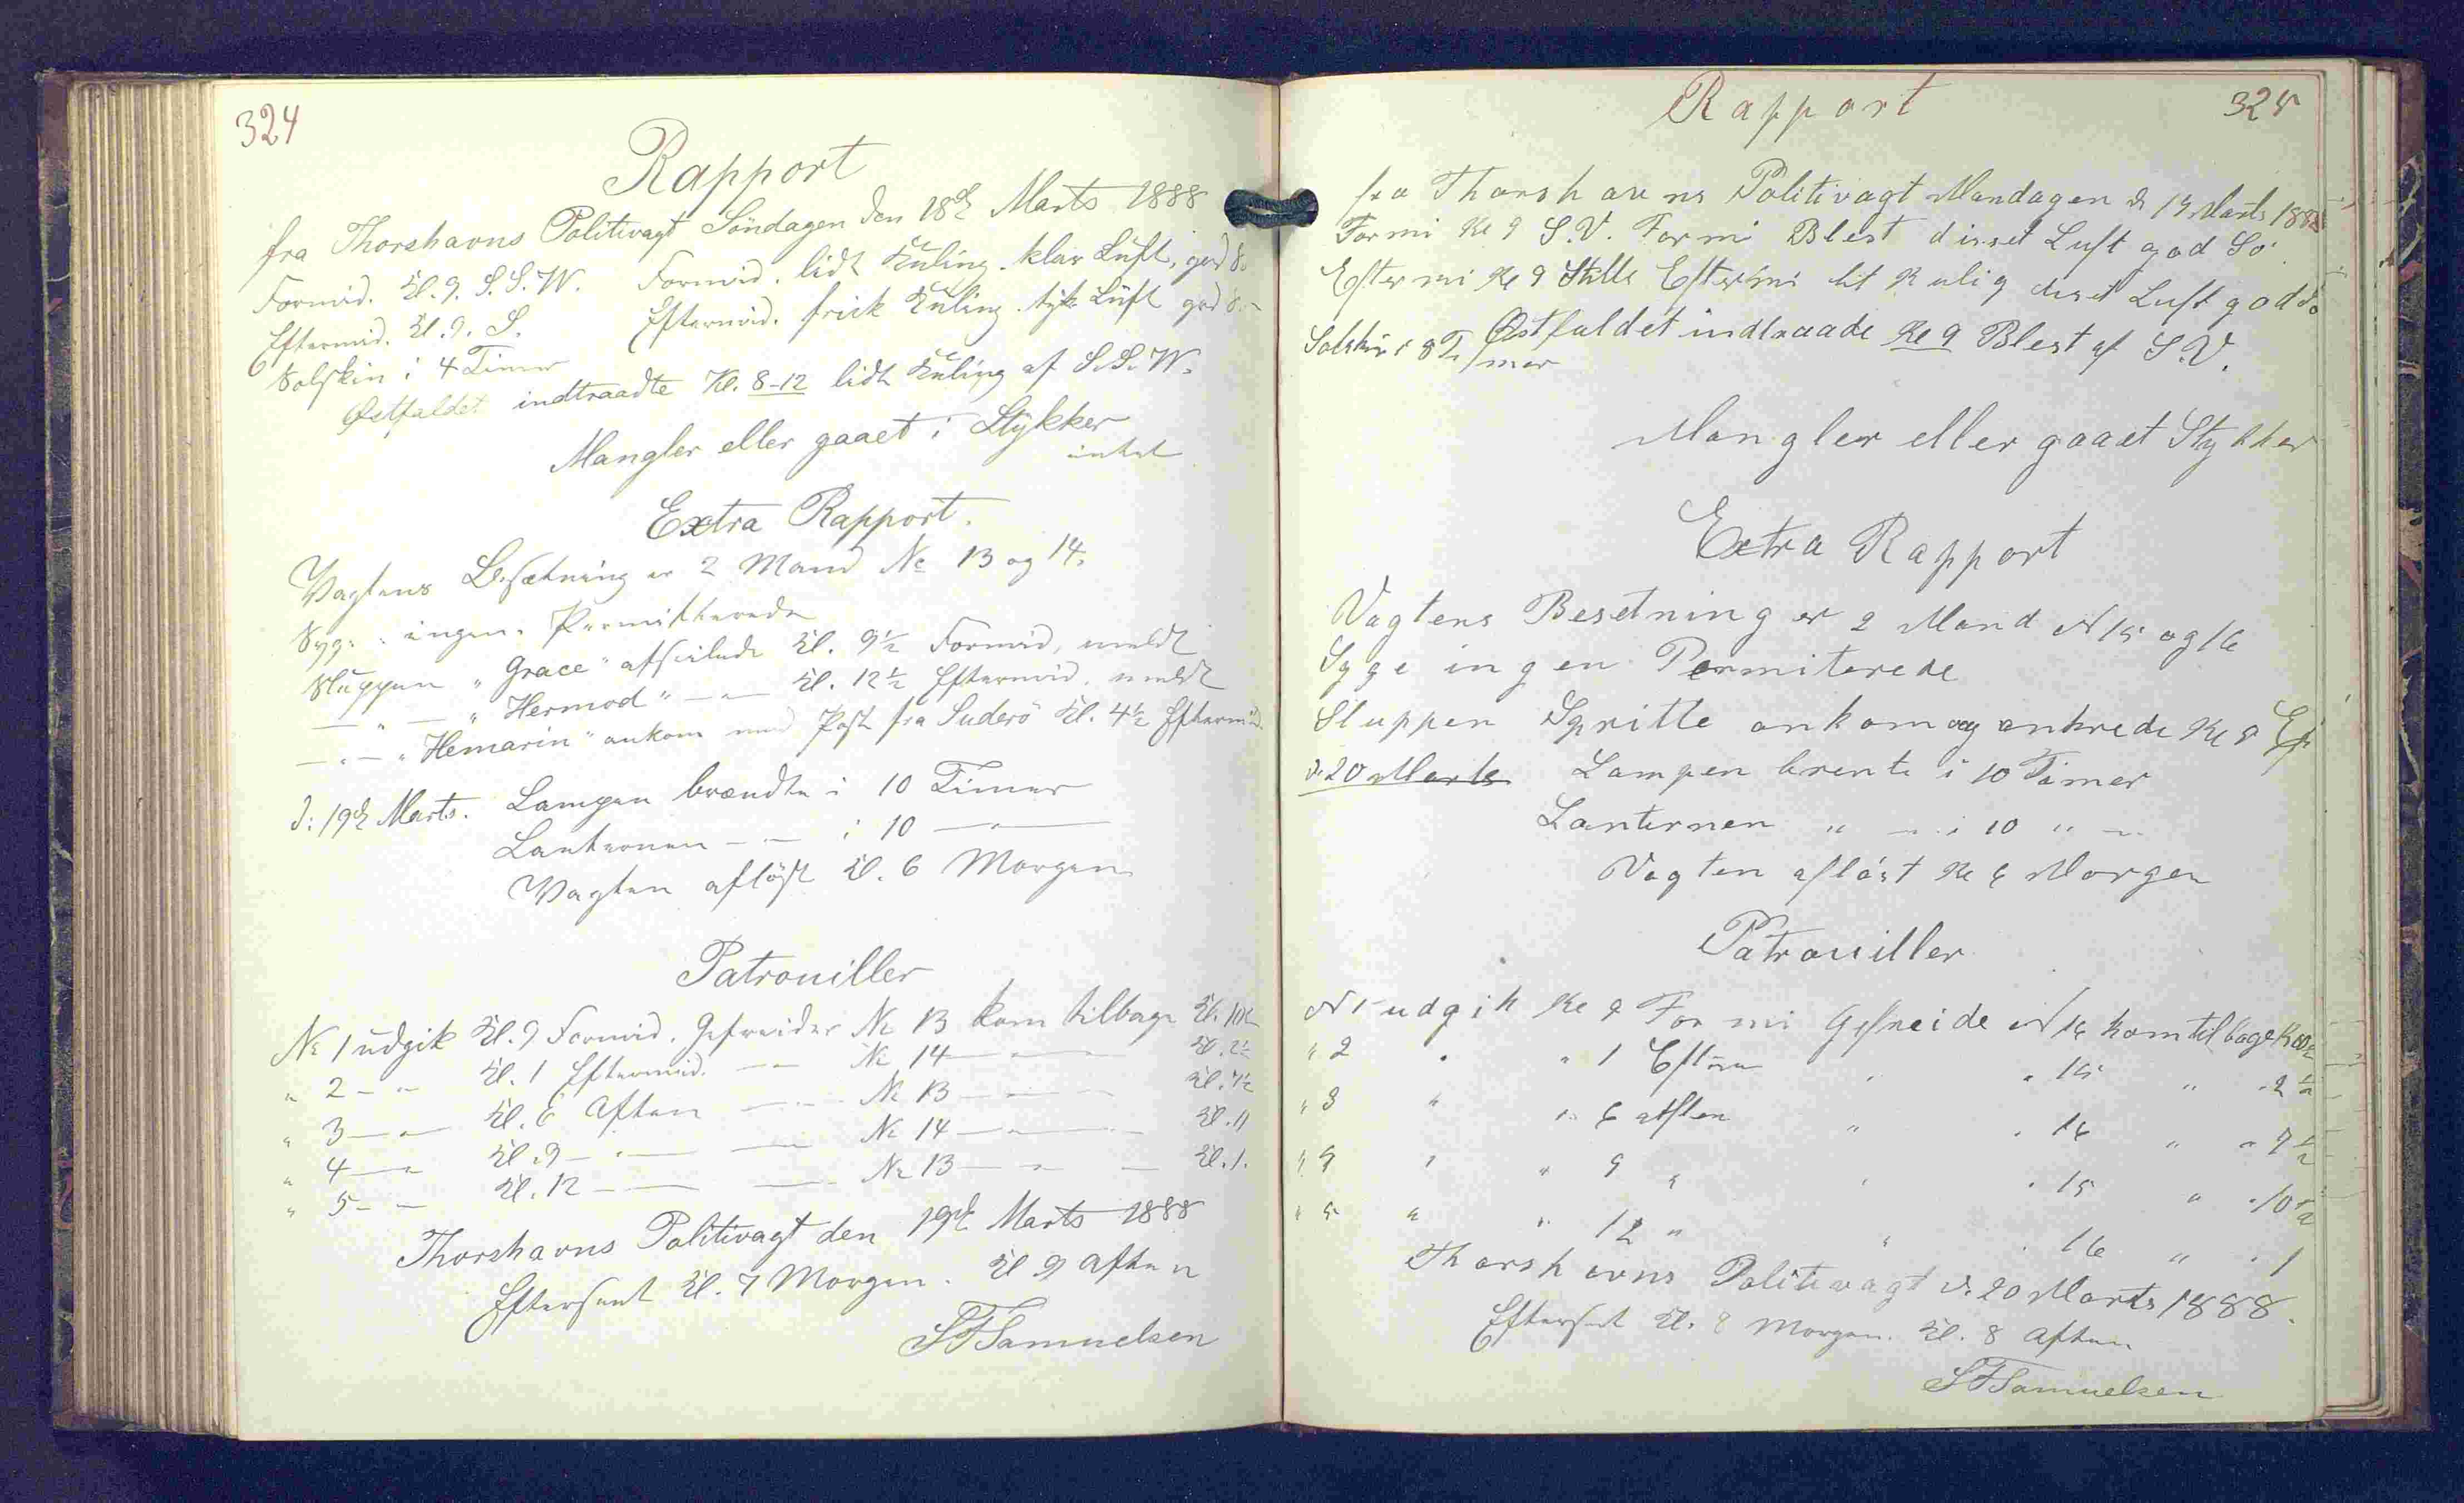 324
Rapport
fra Thorshavns Politivagt Söndagen den 18de Marts 1888
Formid. Kl. 9. S.S.W. Formid. lidt Kuling. klar Luft, god S.
Eftermid. Kl. 9. S. Eftermid. frisk Kuling. tyk Luft god S.
Solskin i 4 Timer
Østfaldet indtraadte Kl. 8-12 lidt Kuling af S.S.W.
Mangler eller gaaet i Stykker
intet
Extra Rapport.
Vagtens Besætning er 2 Mand No 13 og 14.
Syge: ingen. Permitterede
Sluppen "Grace" afseilede Kl. 9½ Formid, meldt
— " — "Hermod" — " — Kl. 12½ Eftermid. meldt
— " — "Hemarin" ankom med Post fra Suderö Kl. 4½ Eftermid.
d: 19de Marts. Lampen brændte i 10 Timer
Lanternen — — i 10 — " —
Vagten aflöst Kl. 6 Morgen
Patrouiller
No 1 udgik Kl. 9 Formid. Gefreider No 13 kom tilbage Kl. 10½
" 2 - " Kl. 1 Eftermid. — " No 14 — " — Kl. 2½
" 3 — " — Kl. 6 Aften — " — No 13 — " — Kl. 7½
" 4 — " Kl. 9 — " — — No 14 — " — Kl. 11
" 5 - — Kl. 12 — — — No 13 — " — Kl. 1.
Thorshavns Politivagt den 19de Marts 1888
Efterseet Kl. 7 Morgen. Kl 9 Aften
SFSamuelsen
Rapport
325
fra Thorshavns Politivagt Mandagen d 19 Marts 1888
Formi Kl 9 S.V. Formi Blest disset Luft god Sö
Eftermi Kl 9 Stille Eftermi lit Kulig diset Luft god So
Østfaldet indtraade Kl 9 Blest af S.V.
Solskin i 8 Timer
Mangler eller gaaet Stykker
Extra Rapport
Vagtens Besetning er 2 Mand N 15 og 16
Syge ingen Permiterede
Sluppen Spritte ankom og ankrede Kl 8 Ef
d: 20 Marts Lampen brente i 10 Timer
Lanternen " — i 10 " —
Vagten aflöst Kl 6 Morgen
Patrouiller
N 1 udgik Kl 9 Formi Gefreide N 16 kom tilbage Kl 10½
" 2 " " 1 Eftm " " 15 " " 2½
" 3 " " 6 Aften " " 16 " " 7½
" 4 " " 9 " " " 15 " " 10½
" 5 " " 12 " " " 16 " " 1
Thorshavns Politivagt d: 20 Marts 1888.
Efterseet Kl. 8 Morgen. Kl. 8 Aften
SFSamuelsen